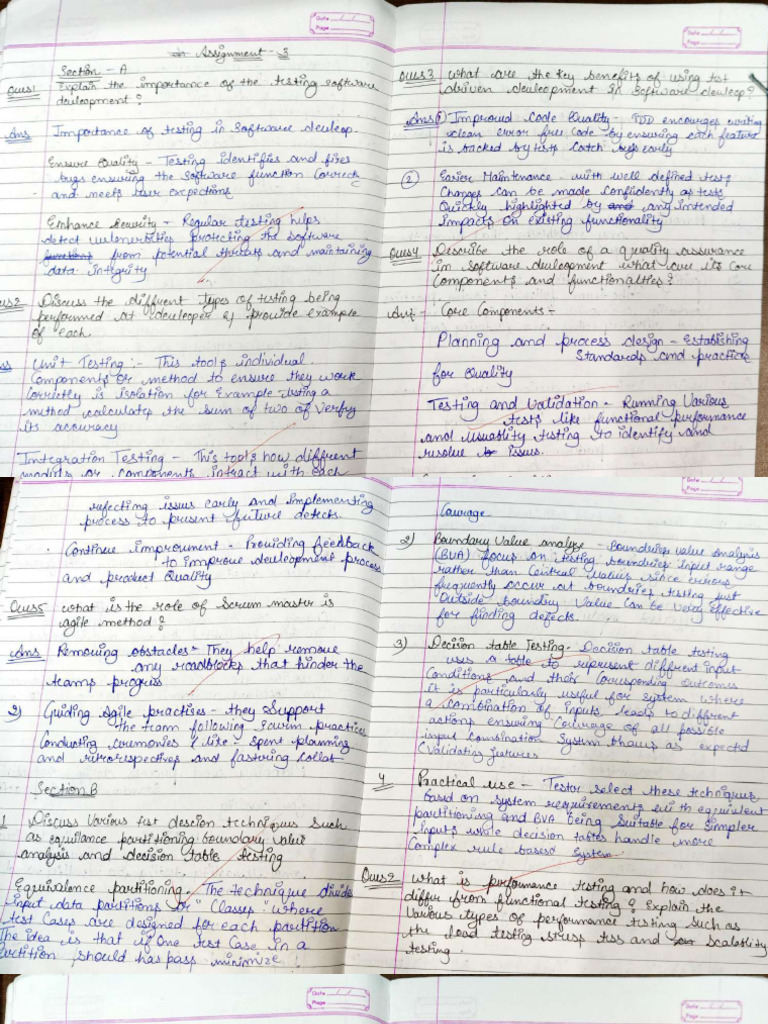 Assignment - 3
Section - A
Ques1 Explain the importance of the testing software
deulopment ?
Ans Importance of testing in software deulop.
Ensure Quality - Testing identifies and fixes
bugs ensuring the software function correct
and meets user expections
Enhance Security - Regular testing helps
detect the software
from potential threats and maintaining
data intigrity
Discuss the diffrent types of testing being
performed at deuloper & provide example
of each.
Unit Testing :- This tools individual
components or method to ensure they work
correctly is isolation for example - testing a
mthod calculates the sum of two of verify
its accuracy
Integration Testing - This tools how diffrent
or components intract with each
Date
Page
Ques3 what are the key benefits of using tst
driven deulopment in software deulop?
Ans ① Improud Code Quality - TDD encourges writing
clean error free code by ensuring each feature
is backed by tests catch bugs early
② Easier Maintenance - with well defined tests
changes can be made confidently as tests
Quickly highlighted by any intended
impacts on existing functionality
Ques4 Describe the role of a quality assurance
in software deulopment what are its core
components and functionalties?
Ans - Core Components -
Planning and process design - Establishing
Standards and practices
for Quality
Testing and Validation - Running Various
tests like functional performance
and usability testing to identify and
resolue issues.
refecting issues early and implementing
process to present future defects.
Continue improument - Prouiding feedback
to improue deulopment process
and product Quality
Ques5 what is the role of scrum master is
agile method ?
Ans Remouing obstacles - They help remoue
any roadblocks that hinder the
teams progress
2) Guiding Agile practises - they Support
the team following scurm practices
Conducting ceremonies like - spent planning
and retrorespectives and fasturing collab
Section B
1 Discuss Various tst descion techniques such
as equilance partitioning boundary value
analysis and decision table testing
Equivalence partitioning. The technique divide
input data partitions or "Classes" where
test cases are designed for each partition
The idea is that if one test case in a
partition should has pass minimize
Date
Page
Courage
2) Boundary Value analyze - Boundries value analysis
(BVA) focus on testing boundries input range
rather than Central Values since errors
frequently occur at boundries testing just
outside boundry Value can be very effective
for finding defects.
3) Decision table Testing - Decision table testing
uses a table to represent diffrent input
Conditions and their corresponding outcomes
it is particularly useful for system where
a combination of inputs leads to different
actions ensuring courage of all possible
input combination system bhaus as expectd
4 Practical use - Testor select these technques
based on system requirements with equivlent
partitioning and BVA being suitable for simpler
inputs while decision tables handle more
Complex rule based System
Ques2 what is performance testing and how does it
differ from functional testing? Explain the
various types of performance testing such as
the load testing stress tss and scalability
testing
Date
Page